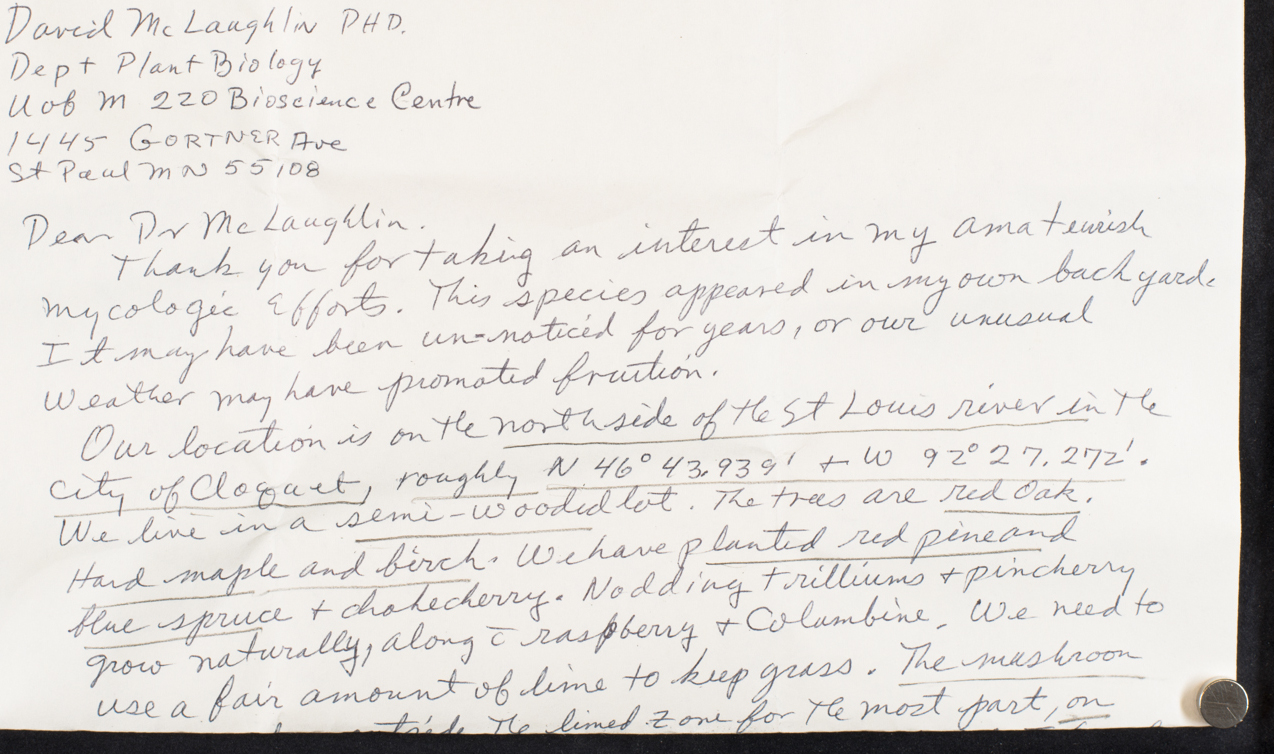 David McLaughlin PHD.
Dept Plant Biology
U of M 220 Bioscience Centre
1445 GORTNER Ave
St Paul MN 55108
Dear Dr McLaughlin.
Thank you for taking an interest in my amateurish
mycologic Efforts. This species appeared in my own back yard.
It may have been un-noticed for years, or our unusual
Weather may have promoted fruition.
Our location is on the north side of the St Louis river in the
city of Cloquet, roughly N 46° 43.939' + W 92° 27.272'.
We live in a semi-wooded lot. The trees are red Oak.
Hard maple and birch. We have planted red pine and
blue spruce + chokecherry. Nodding trilliums + pincherry
grow naturally, along c̄ raspberry + Columbine. We need to
use a fair amount of lime to keep grass. The mushroom
outside the limed zone for the most part, on